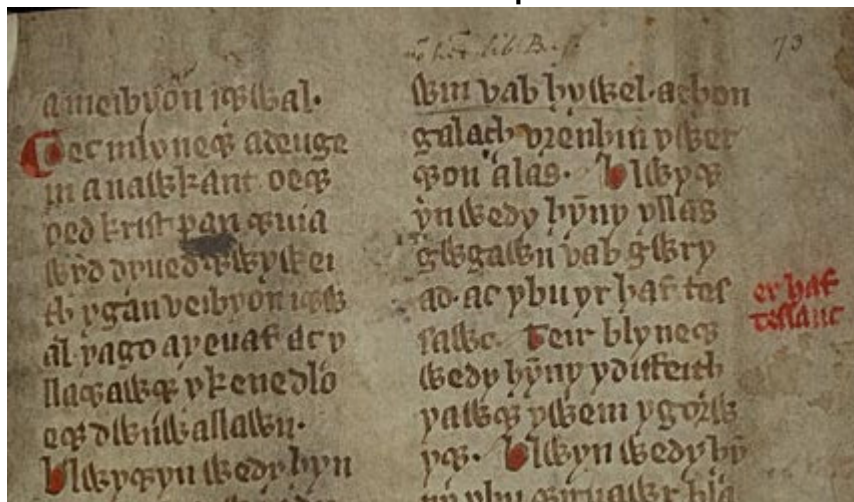 73
ameibyon idỽal.
Dec mlyned adeuge
in anaỽkant oed
oed krist pan diua
ỽyd dyued dỽyỽei
th ygan veibyon idỽ
al yago ayeuaf ac y
llad aỽd ykenedlo
ed dỽnỽallaỽn.
Blỽydyn ỽedy hyn
ỽin vab hyỽel. achon
galach vrenhin yỽer
don alas. Blỽyd
yn ỽedy hẏny yllas
gỽgaỽn vab gỽry
ad. ac ybu yr haf tes
saỽc. Teir blyned
ỽedy hẏny ydiffeith
yaỽd yỽein ygorỽ
yd. Blỽyn ỽedy hẏ
ny ybu diruaỽr hia
er haf
tessauc